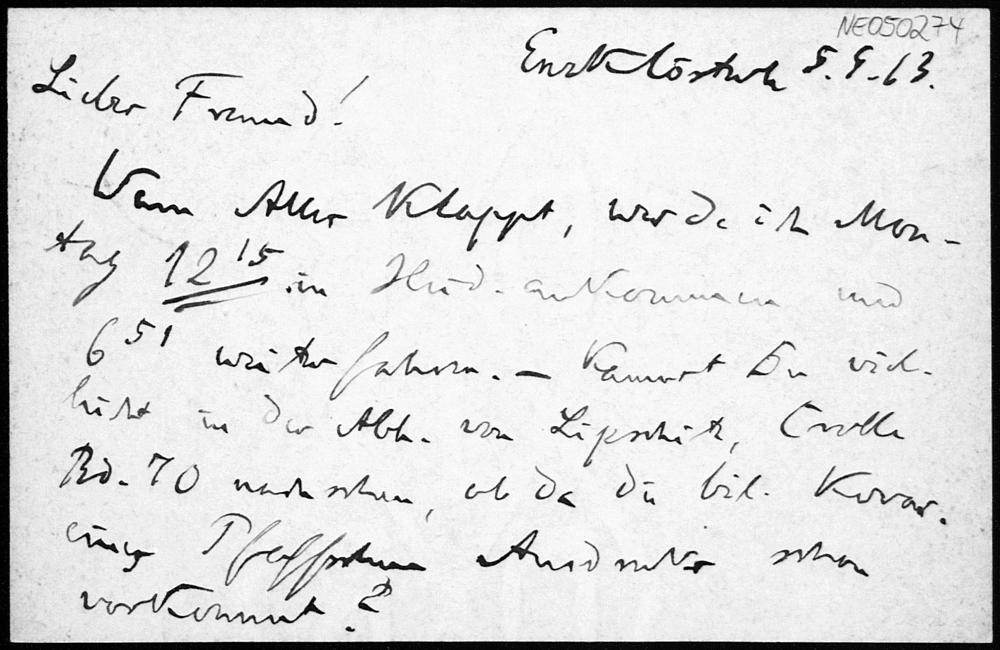 NE050274
Enzklösterle 5.9.13.
Lieber Freund!
Wenn Alles klappt, werde ich Mon-
tag 12 15 in Heid. ankommen und
6 51 weiterfahren. — Kannst Du viel-
leicht in der Abh. von Lipschitz, Crelle
Bd. 70 nachsehen, ob da die bil. Kovar.
eines Pfaffschen Ausdrucks schon
vorkommt?